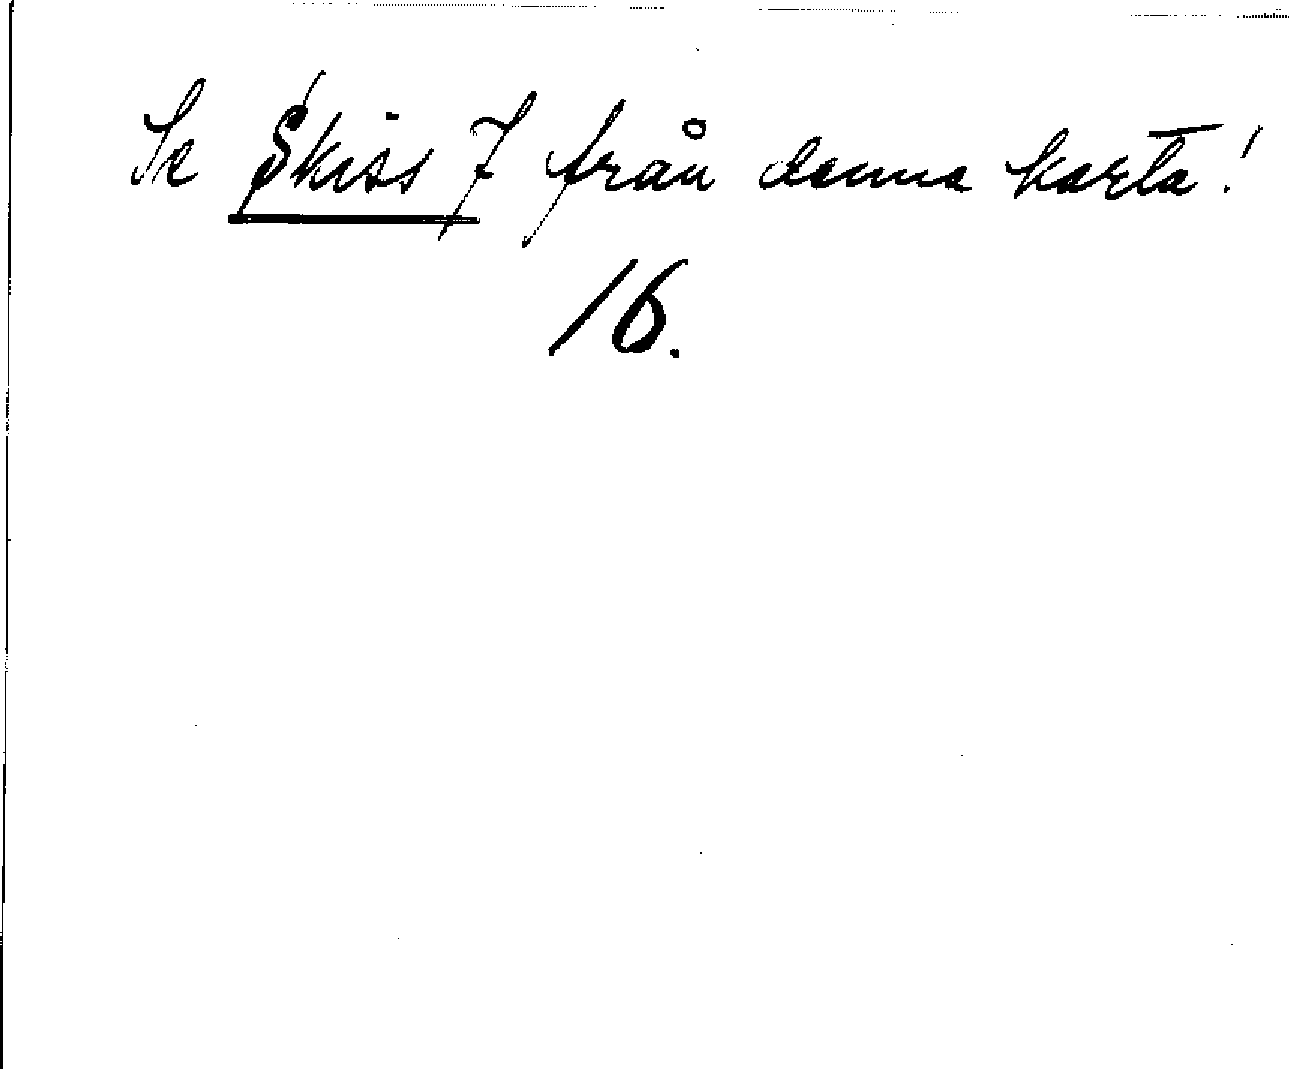 Se Skiss 7 från denna karta!
16.